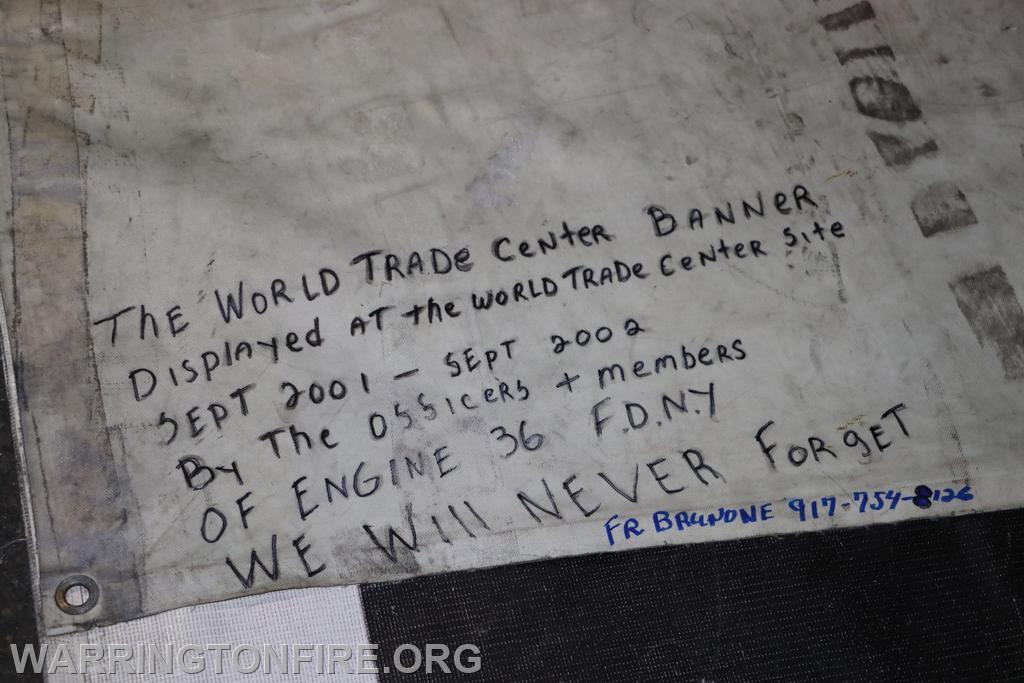 ThE WORLD TRADe CenteR BANNeR
DisplAyed AT the WORLD TRADe CenteR Site
SEPT 2001 - SEPT 2002
By The OSSiceRS + members
OF ENGINE 36 F.D.N.Y
WE Will NEVER FoRgET
FR BRUNONE 917-754-8126
WARRINGTONFIRE.ORG